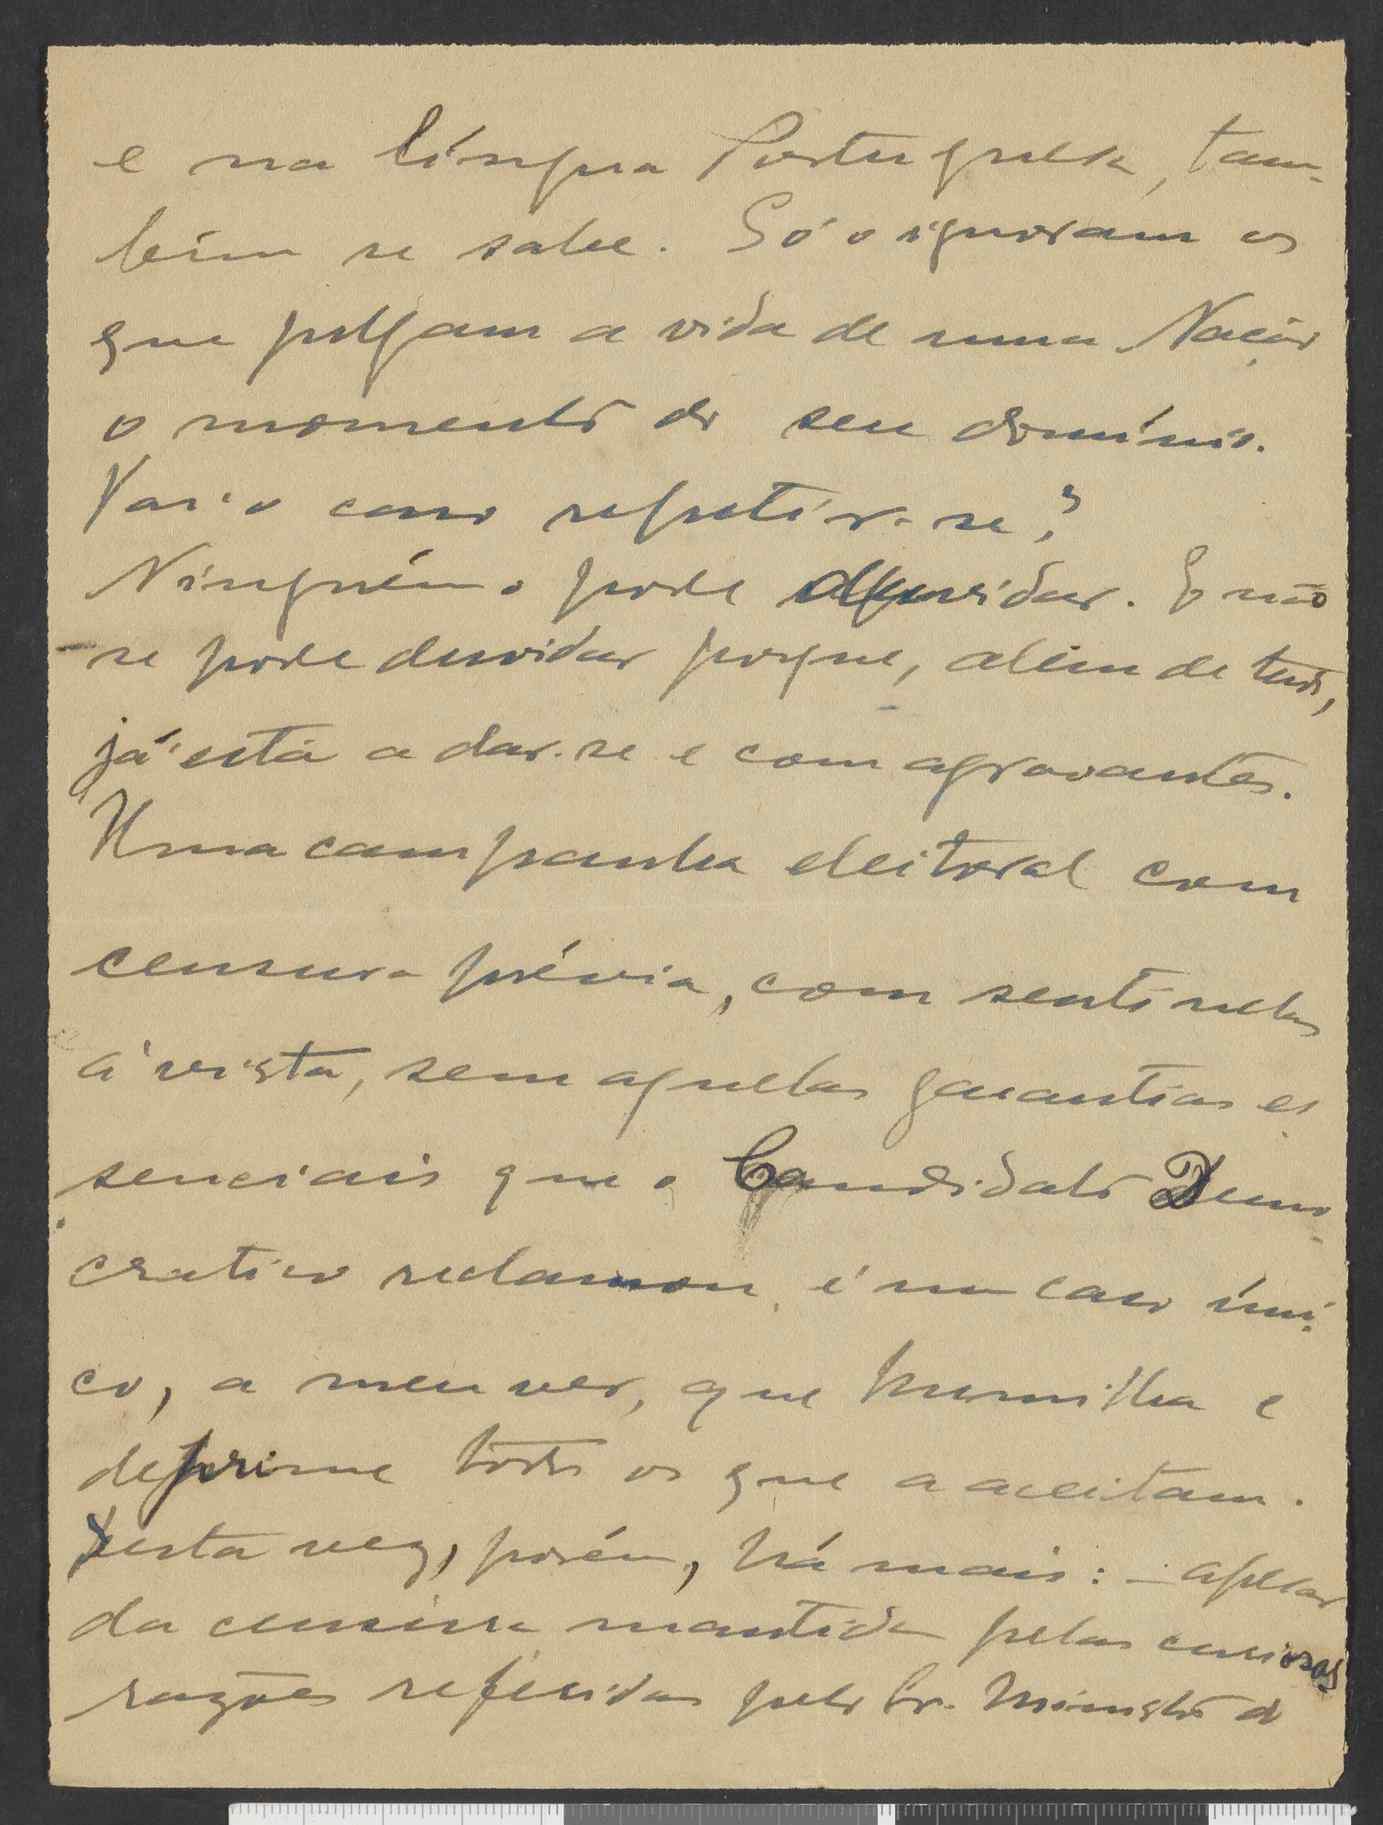 e na língua Portuguesa, tam-
bém se sabe. Só o ignoram os
que julgam a vida de uma Nação
o momento do seu domínio.
Vai o caso repetir-se?
Ninguém o pode duvidar. E não
se pode duvidar porque, além de tudo,
já está a dar-se e com agravantes.
Uma campanha eleitoral com
censura prévia, com sentinelas
à vista, sem aquelas garantias es
senciais que o Candidato Demo-
cratico reclamou, é um caso úni-
co, a meu ver, que humilha e
deprime todos os que a aceitam.
Desta vez, porém, há mais: - apesar
da censura mantida pelas curiosas
razões referidas pelo Sr. Ministro do